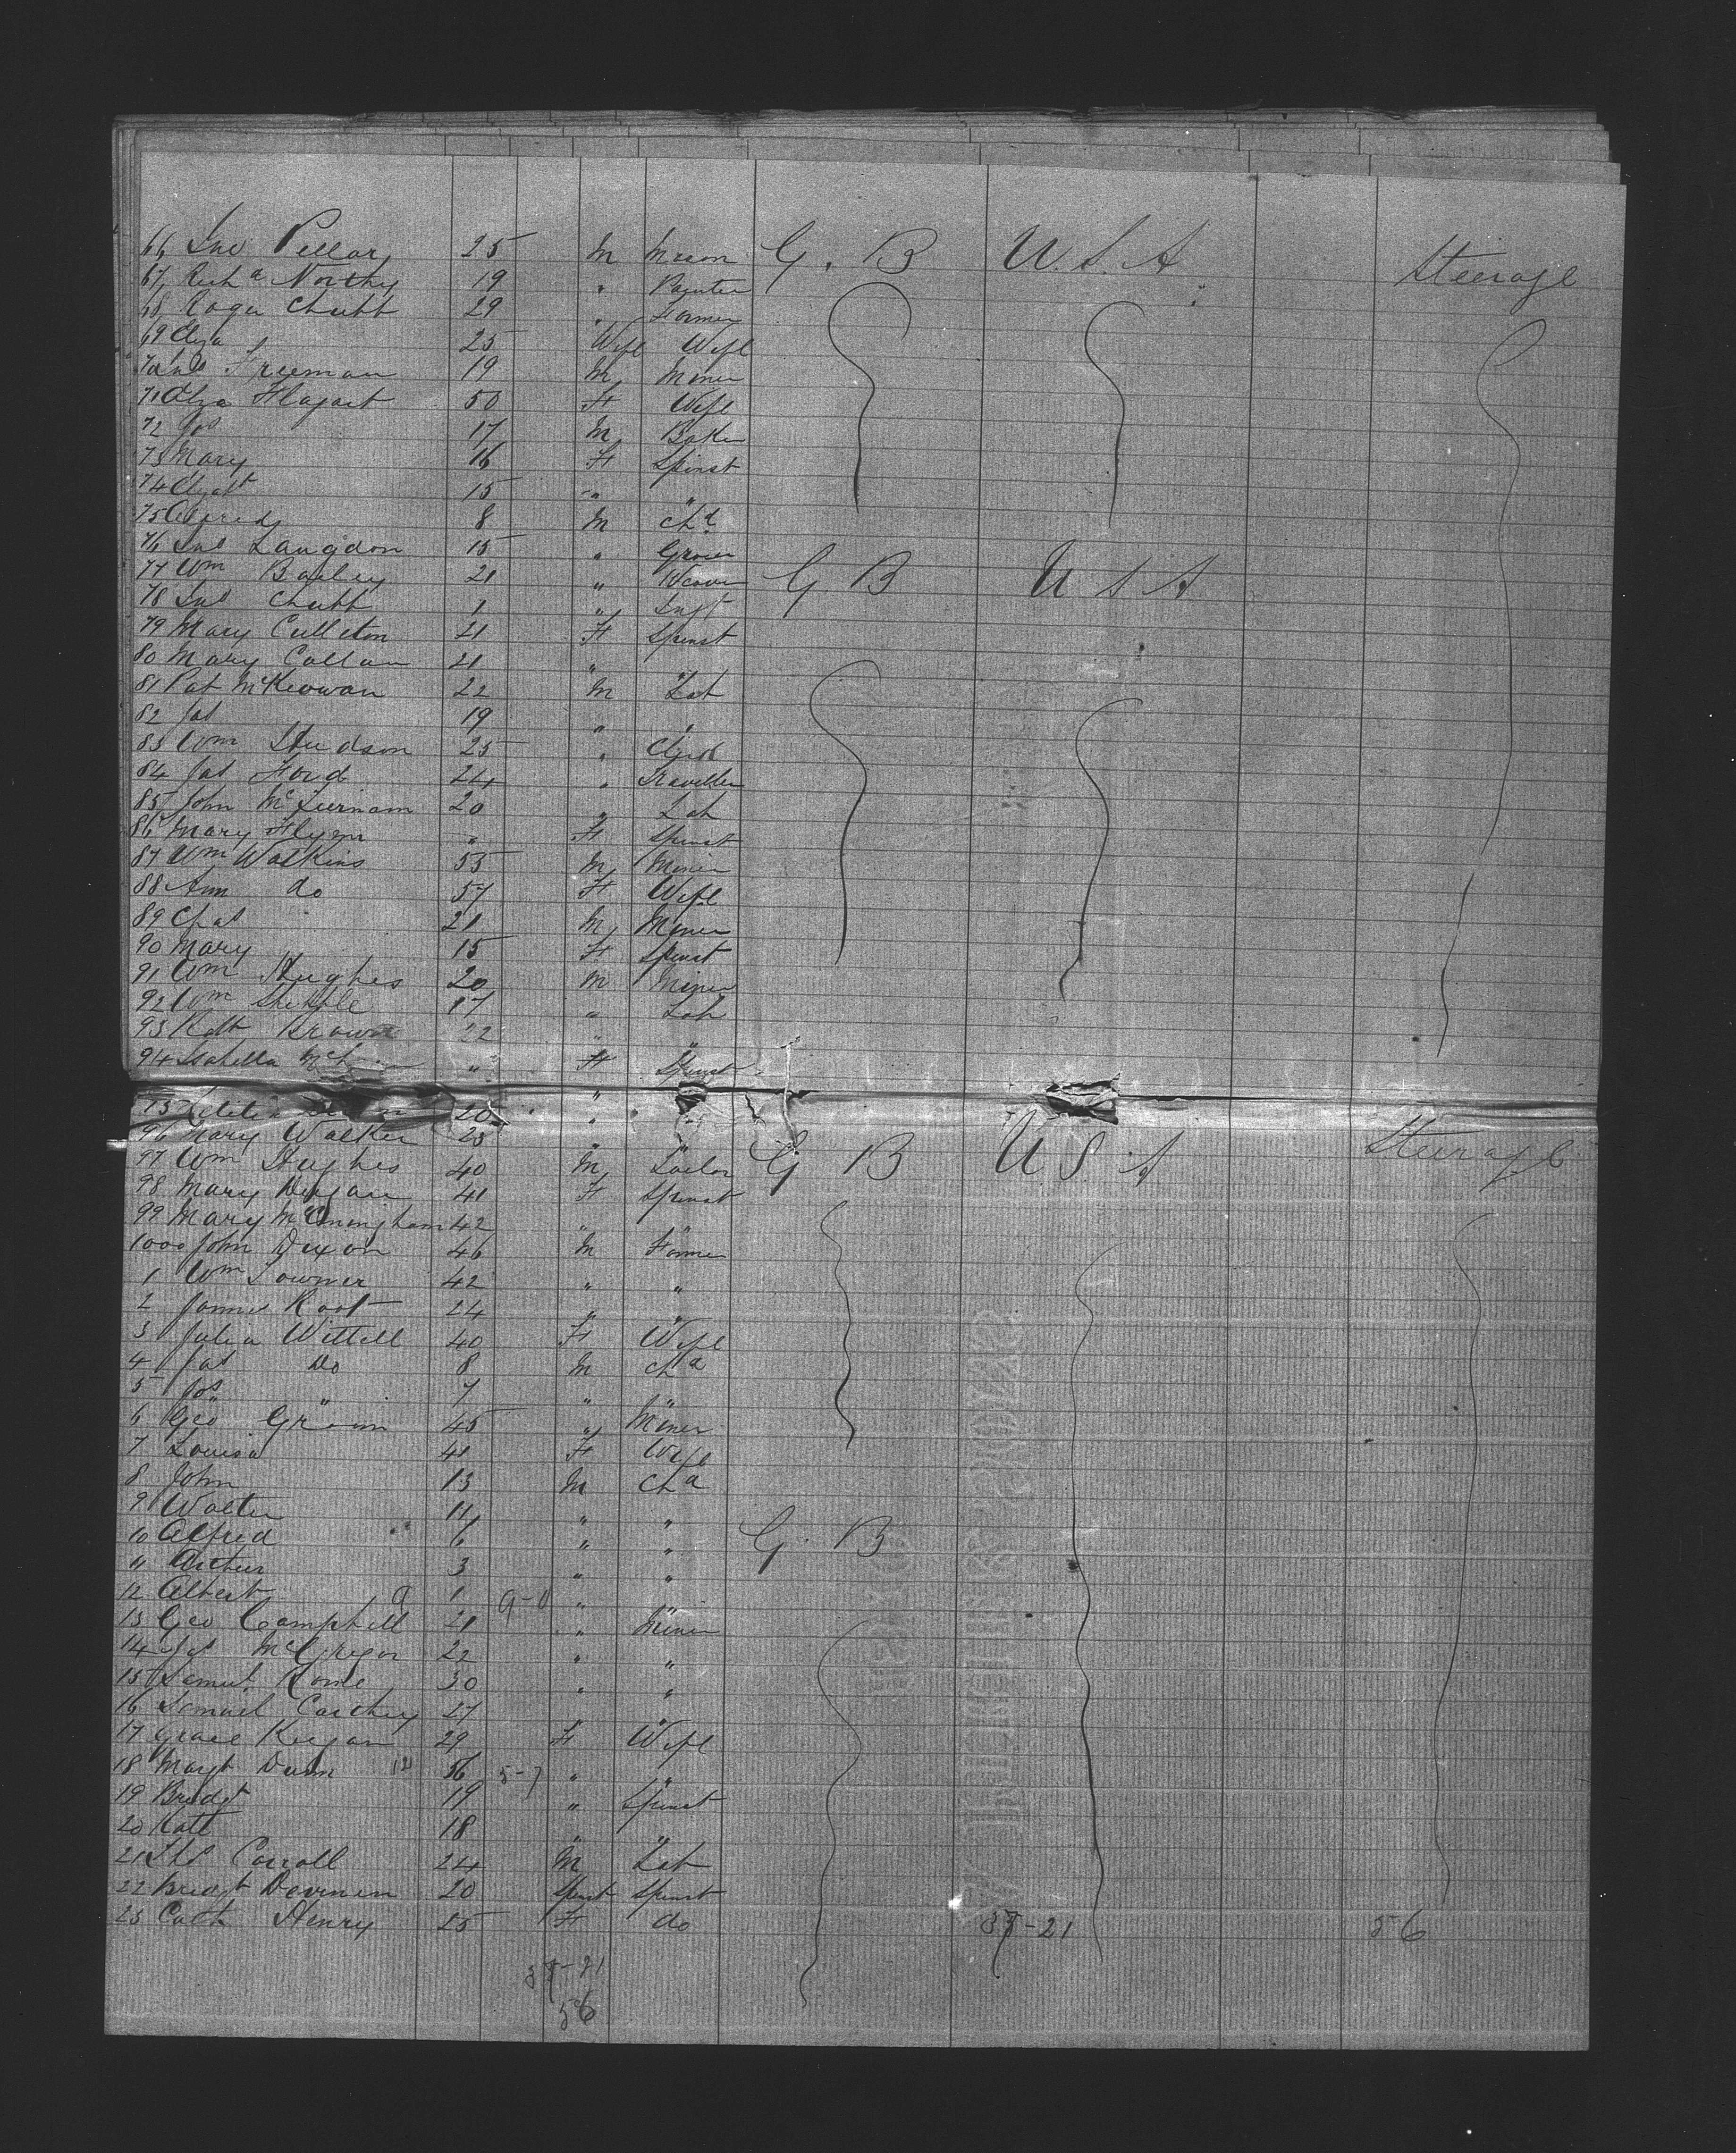 66 Jno Pellar 25 M Mason G. B U.S.A Steerage
67 Richd Northy 19 " Painter
68 Roger Chubb 29 " Farmer
69 Eliza 25 Wife Wife
70 Jno Freeman 19 M Miner
71 Eliza 50 F Wife
72 Jos 17 M Baker
73 Mary 16 F Spinst
74 15 " "
75 Alfred 8 M Chd
76 Jno Langdon 15 " Grocer
77 Wm Bayley 21 " Weaver G B U S A
78 Jno Chubb 1 " Inft
79 Mary Culleton 21 F Spinst
80 Mary Callan 21 " "
81 Pat McKeowan 22 M Lab
82 Jas 19 " "
83 Wm Hudson 25 " Clerk
84 Jas Ford 24 " Traveller
85 John 20 " Lab
86 Mary Flynn " F Spinst
87 Wm Watkins 53 M Miner
88 Ann do 57 F Wife
89 Chas 21 M Miner
90 Mary 15 F Spinst
91 Wm Hughes 20 M Miner
92 Wm 17 " Lab
93 Robt Brown 22 " "
94 Isabella " F Spinst
95 20 " "
96 Mary Walker 25 " "
97 Wm Hughes 40 M Tailor G B U S A Steerage
98 Mary 41 F Spinst
99 Mary 42 " "
1000 John Dixon 46 M Farmer
1 Wm 42 " "
2 James Root 24 " "
3 Julia Wittell 40 F Wife
4 Jas Do 8 M Chd
5 Jos " 7 " "
6 Geo 45 " Miner
7 Louisa 41 F Wife
8 John 13 M Chd
9 Walter 11 " "
10 Alfred 6 " " G. B
" Arthur 3 " "
12 Albert 9 1 9-0 " "
13 Geo Campbell 21 " Miner
14 Jas McGregor 22 " "
15 Samul 30 " "
16 Samuel 27 "
17 Grace Keegan 29 F Wife
18 Margt Dunn 12 56 5-7 " "
19 Bridgt 19 " Spinst
20 Kate 18 " "
21 Ths Carroll 24 M Lab
22 Bridgt 20 Spinst Spinst
23 Cath Henry 25 F do 37-21 56
37-21
56